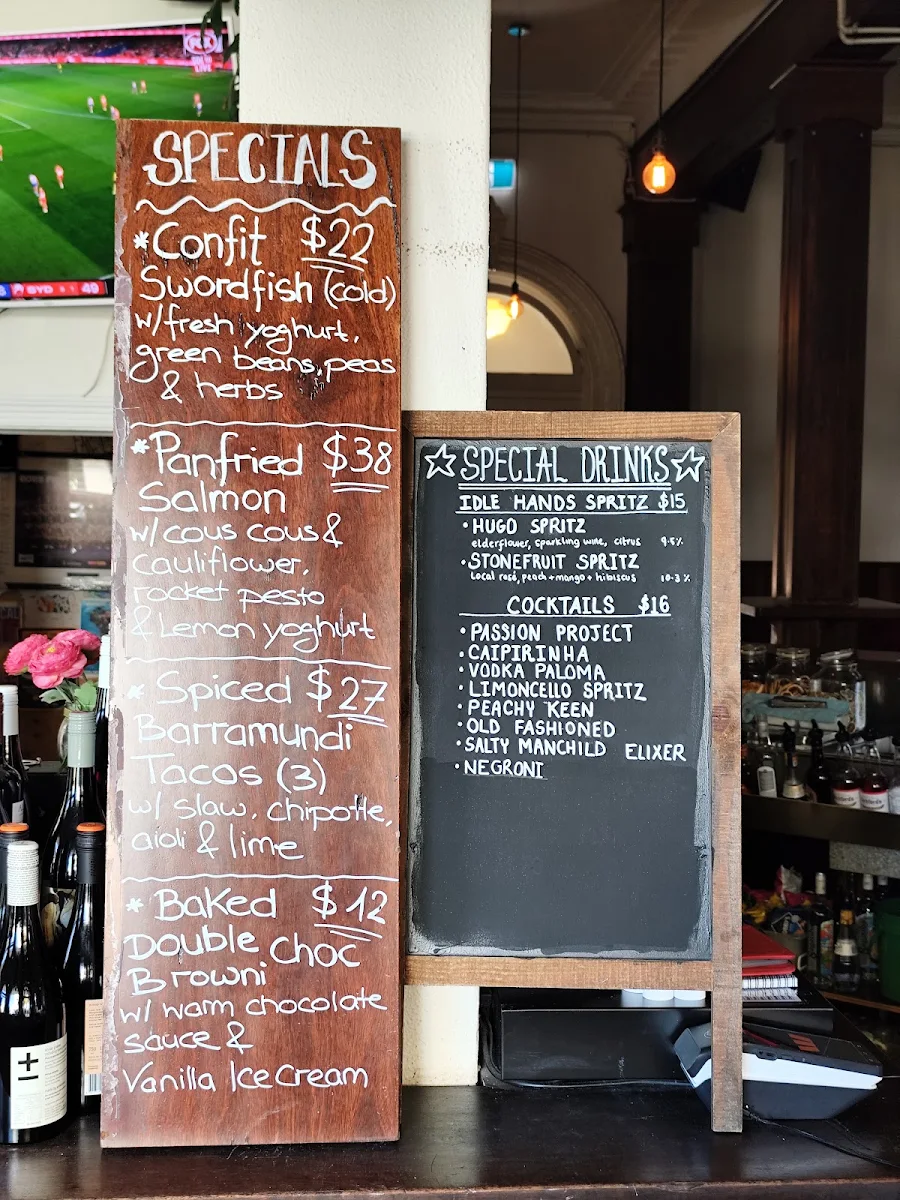 SPECIALS
*Confit $22
Swordfish (cold)
w/fresh yoghurt,
green beans, peas
& herbs
*Panfried $38
Salmon
w/cous cous &
Cauliflower,
rocket pesto
& Lemon yoghurt
* Spiced $27
Barramundi
Tacos (3)
w/ slaw, chipotle,
aioli & lime
* Baked $12
Double Choc
Browni
w/ warm chocolate
sauce &
Vanilla Ice Cream
☆ SPECIAL DRINKS ☆
IDLE HANDS SPRITZ $15
• HUGO SPRITZ
elderflower, sparkling wine, citrus 9.5%
• STONEFRUIT SPRITZ
Local rosé, peach + mango + hibiscus 10.3%
COCKTAILS $16
• PASSION PROJECT
• CAIPIRINHA
• VODKA PALOMA
• LIMONCELLO SPRITZ
• PEACHY KEEN
• OLD FASHIONED
• SALTY MANCHILD ELIXER
• NEGRONI
BYD
49
LIVE